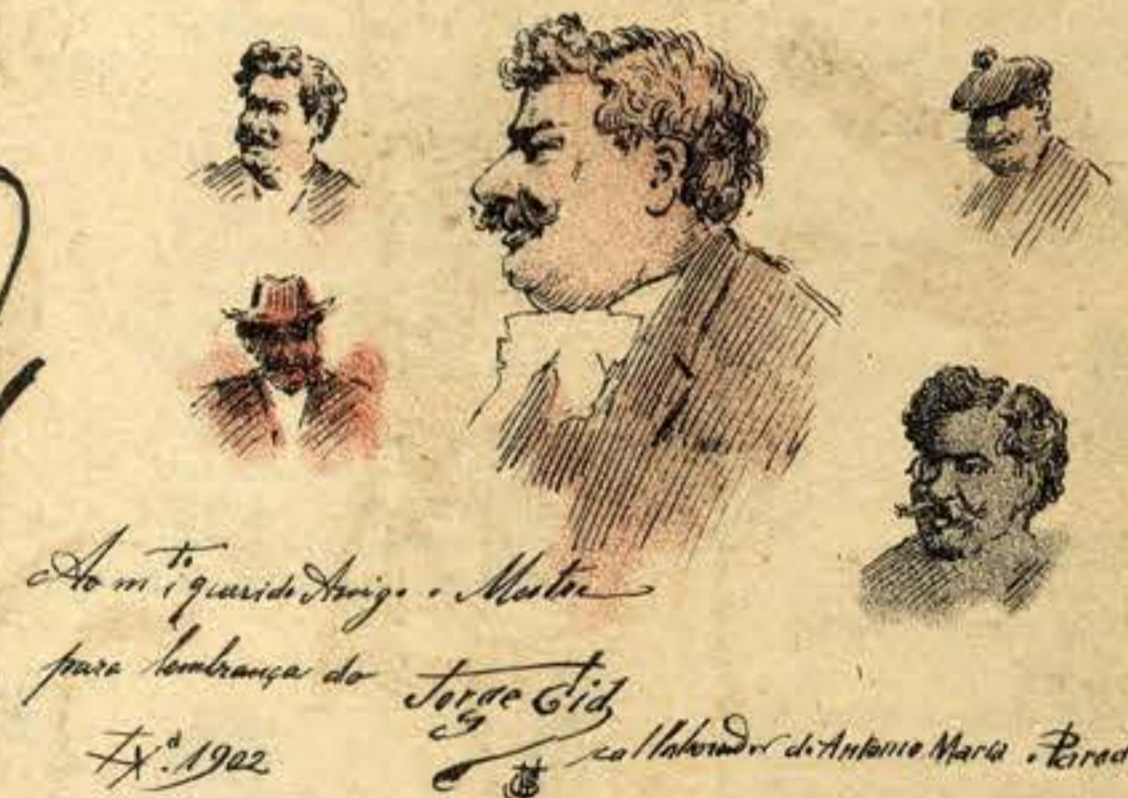 Ao m.to querido Amigo e Mestre
para lembrança do Jorge Cid
Lx.ª 1902
collaborador do Antonio Maria e Parod